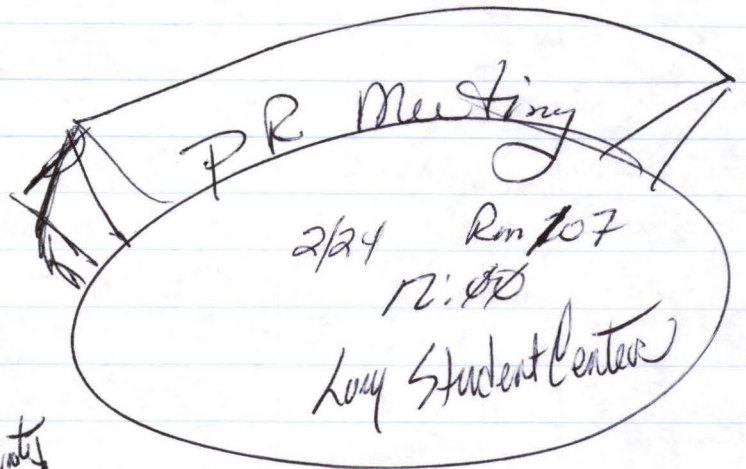 PR Meeting
2/24 Rm 107
12:00
Lory Student Center